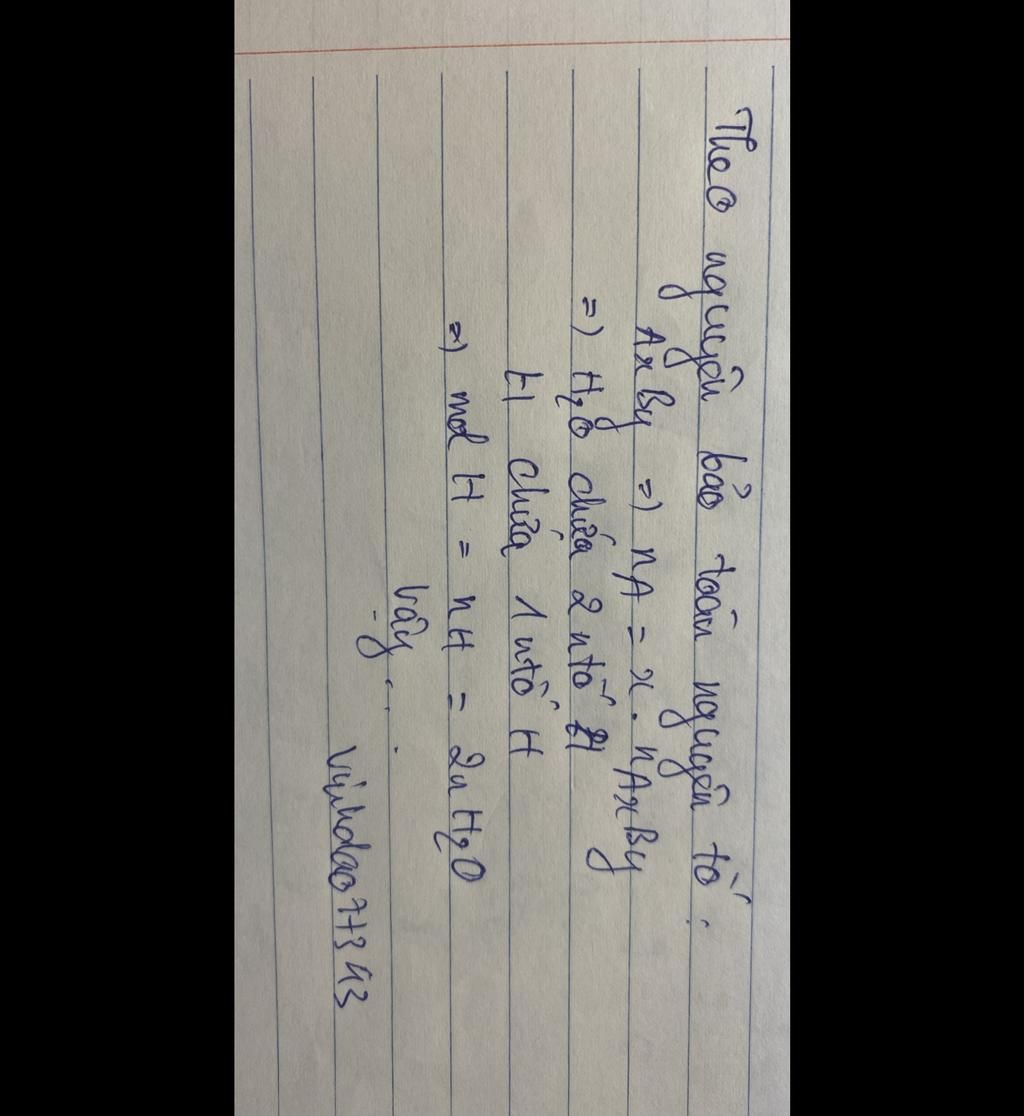 Theo nguyên bảo toàn nguyên tố:
AxBy => nA = x . nAxBy
=> H2O chứa 2 ntố H
H chứa 1 ntố H
=> mol H = nH = 2nH2O
Vậy ...